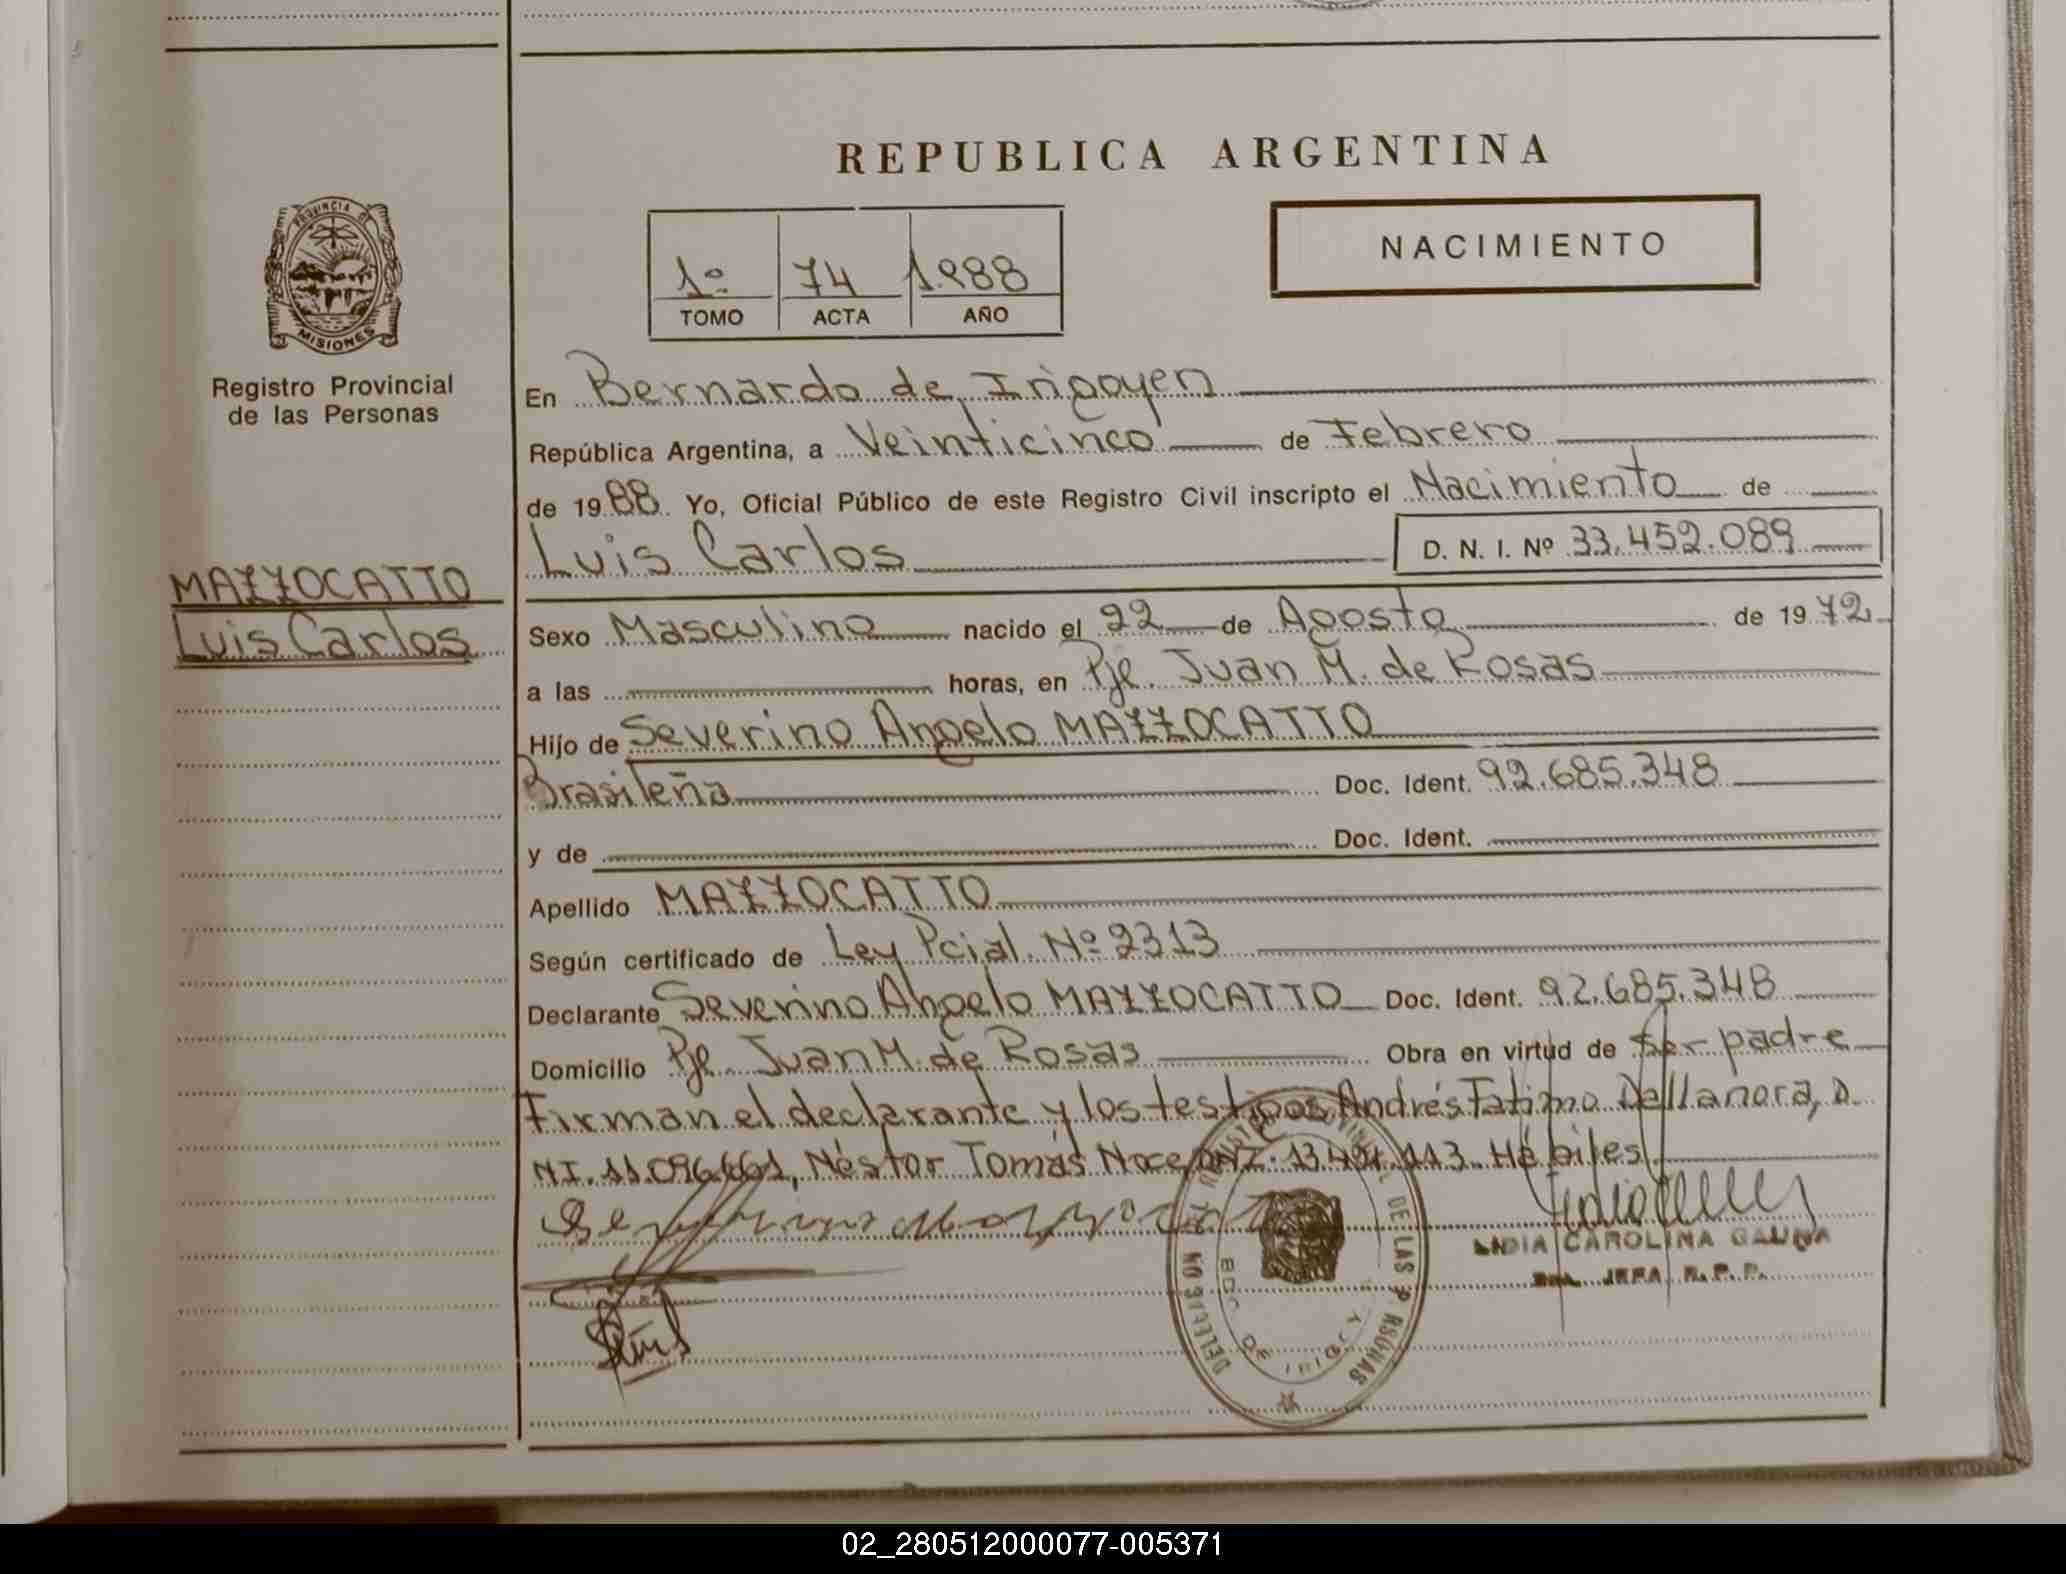 REPUBLICA ARGENTINA
PROVINCIA DE
MISIONES
Registro Provincial
de las Personas
MAZZOCATTO
Luis Carlos
1º 74 1.988
TOMO ACTA AÑO
NACIMIENTO
En Bernardo de Irigoyen
República Argentina, a Veinticinco de Febrero
de 1988 Yo, Oficial Público de este Registro Civil inscripto el Nacimiento de
Luis Carlos D. N. I. Nº 33.452.089
Sexo Masculino nacido el 22 de Agosto de 1972
a las horas, en Pje. Juan M. de Rosas
Hijo de Severino Angelo MAZZOCATTO
Brasileña Doc. Ident. 92.685.348
y de Doc. Ident.
Apellido MAZZOCATTO
Según certificado de Ley Pcial. Nº 2313
Declarante Severino Angelo MAZZOCATTO Doc. Ident. 92.685.348
Domicilio Pje. Juan M. de Rosas Obra en virtud de ser padre
Firman el declarante y los testigos Andrés Fatimo Dellanora, D.
NI. 11.096.661, Néstor Tomás Noce, DNI. 113. Hábiles
LIDIA CAROLINA GAUNA
JEFA R. P. P.
02_280512000077-005371